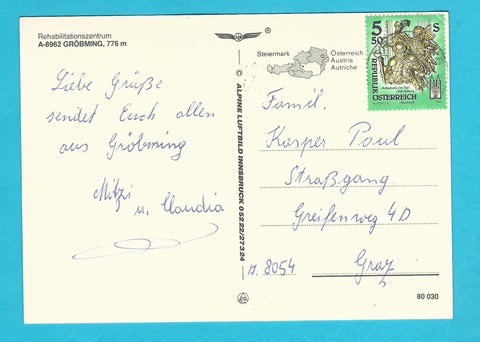 Rehabilitationszentrum
A-8962 GRÖBMING, 776 m
Liebe Grüße
sendet Euch allen
aus Gröbming
Mitzi
u. Claudia
® 
© ALPINE LUFTBILD INNSBRUCK 6 52 22/27 3 24
Steiermark
Österreich
Austria
Autriche
5 50
S
REPUBLIK
ÖSTERREICH
Famil.
Kasper Paul
Straßgang
Greifenweg 4D
A. 8054 Graz
80 030